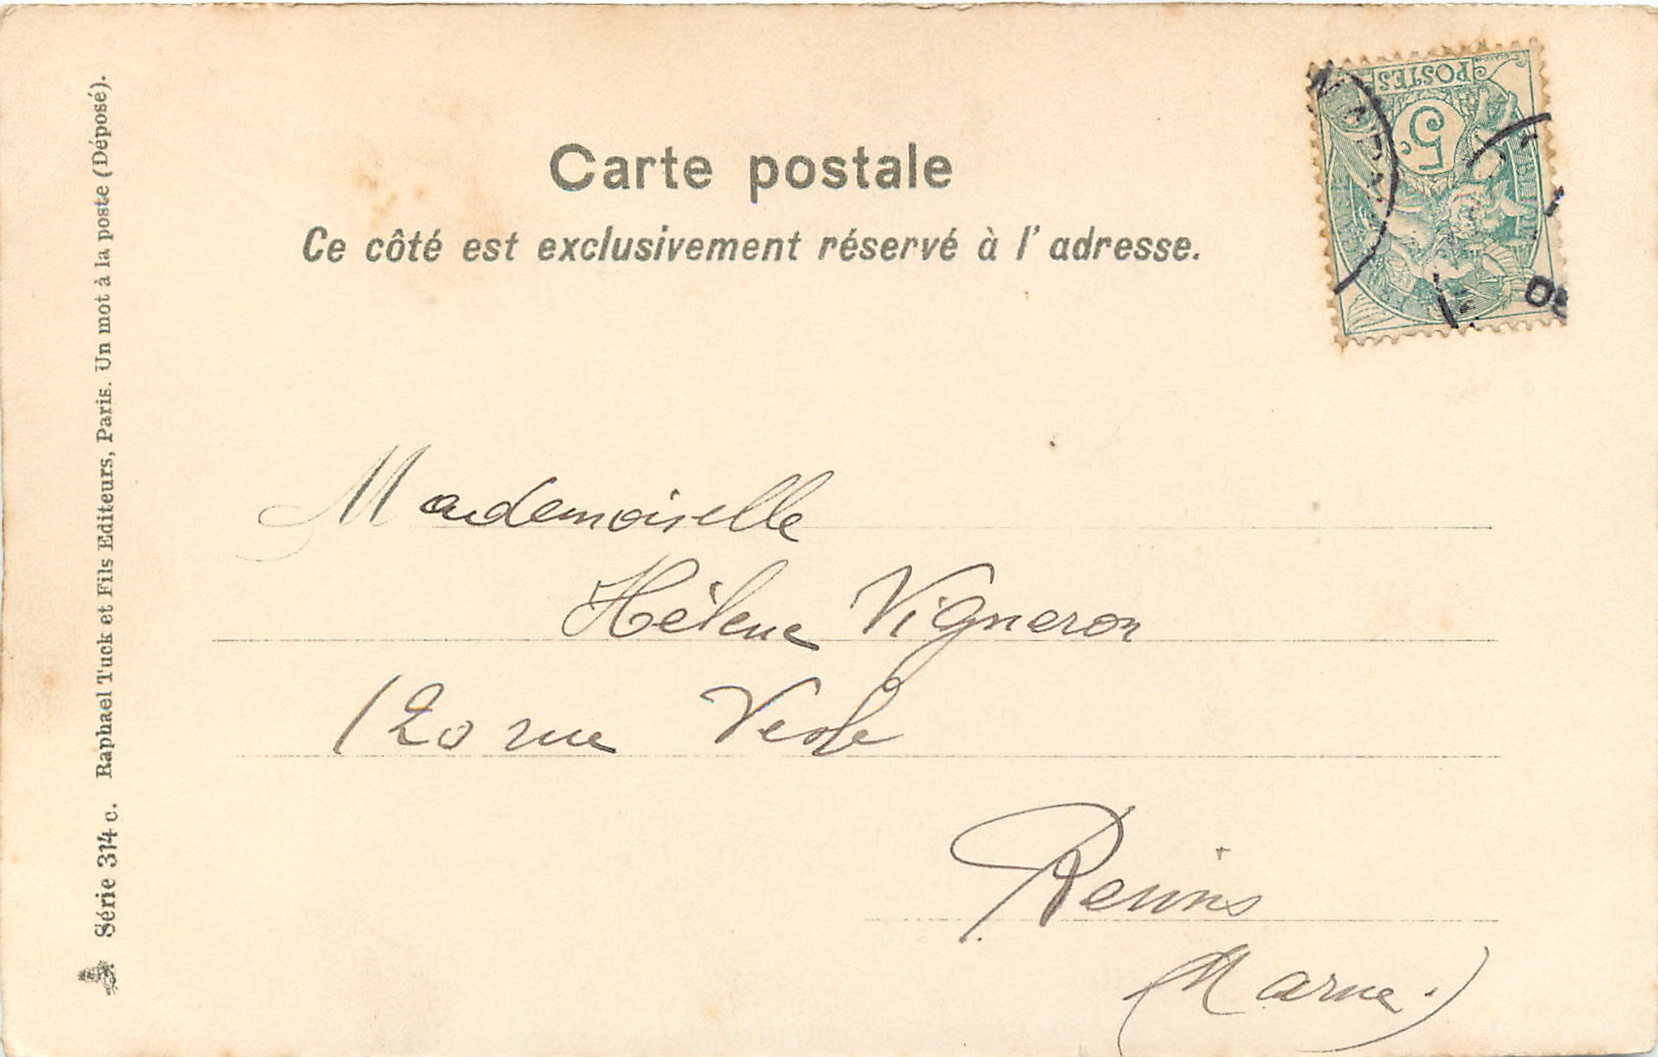 Carte postale
Ce côté est exclusivement réservé à l'adresse.
POSTES
5c.
Mademoiselle
Hélène Vigneron
120 rue Vesle
Reims
(Marne.)
Série 314 c. Raphael Tuck et Fils Editeurs, Paris. Un mot à la poste (Déposé).